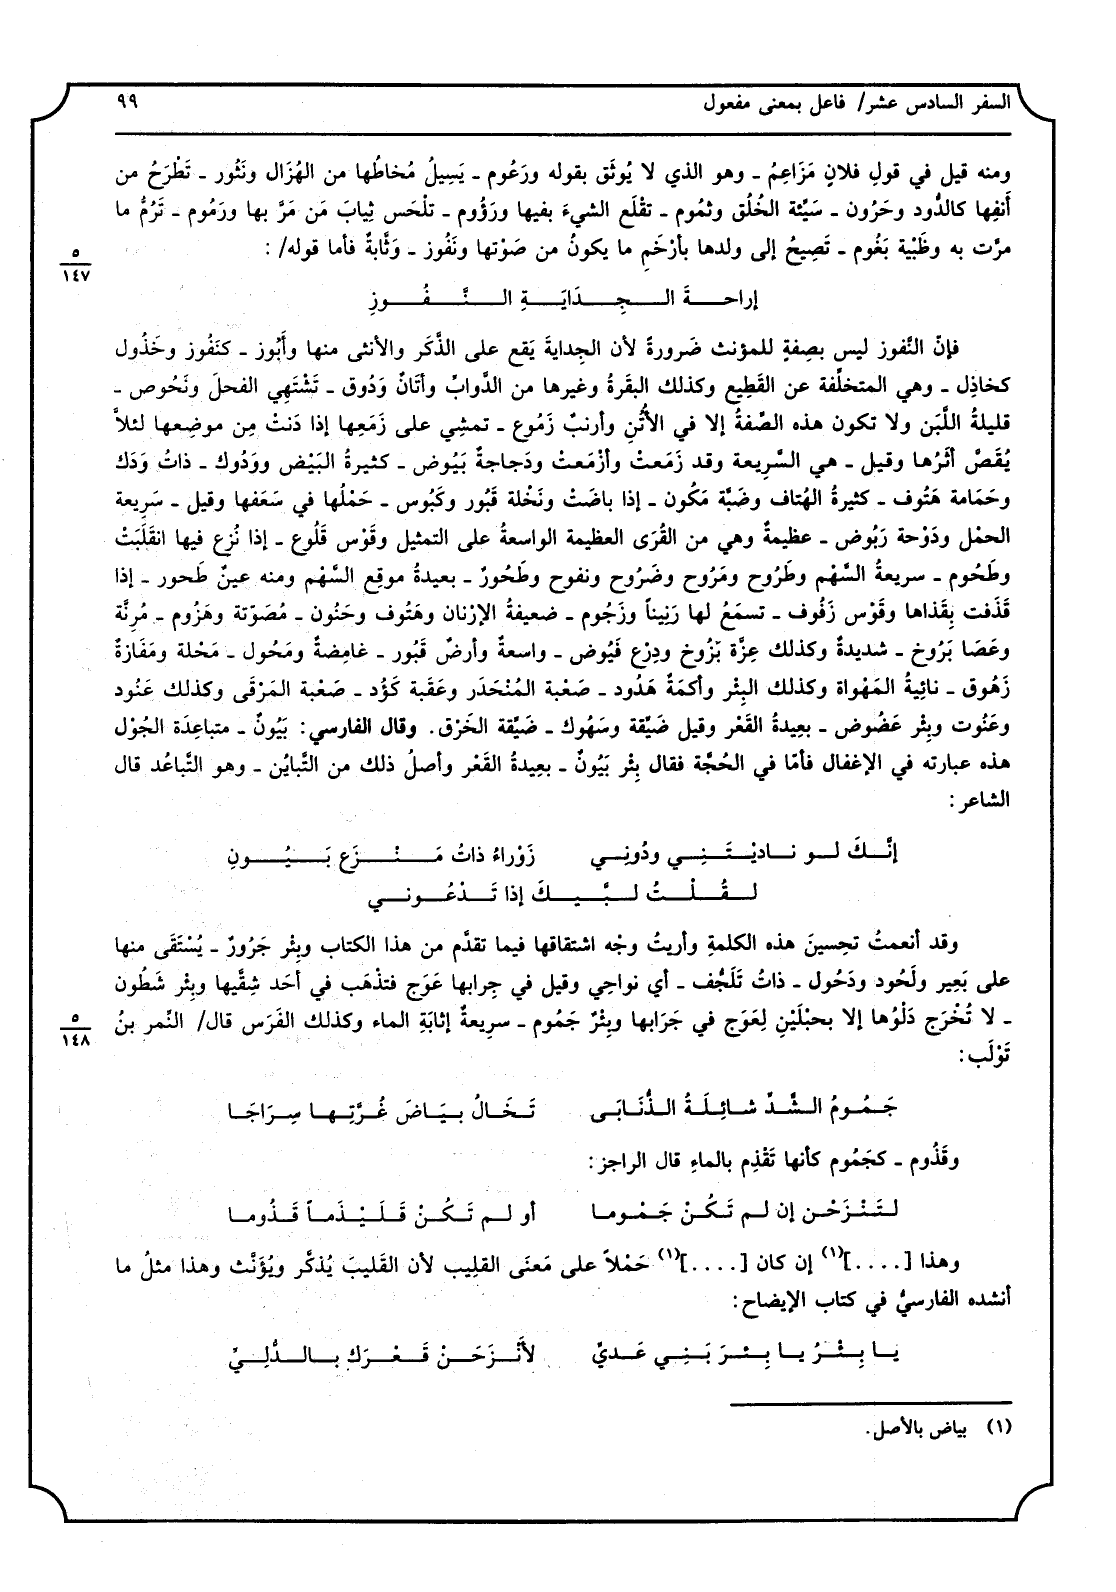 السفر السادس عشر/ فاعل بمعنى مفعول
٩٩
ومنه قيل في قولِ فلانٍ مَزَاعِمُ ـ وهو الذي لا يُوثَق بقوله ورَعُوم ـ يَسِيلُ مُخاطُها من الهُزَال ونَثُور ـ تَطْرَحُ من
أَنفِها كالدُّود وحَرُون ـ سَيِّئة الخُلُق وثمُوم ـ تقْلَع الشيءَ بفيها ورَؤُوم ـ تلْحَس ثِيابَ مَن مَرَّ بها ورَمُوم ـ تَرُمُّ ما
مرَّت به وظَبْية بَغُوم ـ تَصِيحُ إلى ولدها بأرْخَمِ ما يكونُ من صَوْتها ونَفُوز ـ وَثَّابةٌ فأما قوله/ :
٥
١٤٧
إراحــةَ الـجِــدَايَـةِ الـنَّـفُــوزِ
فإنّ النَّفوز ليس بصِفةٍ للمؤنث ضَرورةً لأن الجِدايةَ يَقع على الذَّكَر والأنثى منها وأَبُوز ـ كنَفُوز وخَذُول
كخاذِل ـ وهي المتخلِّفة عن القَطِيع وكذلك البقَرةُ وغيرها من الدَّوابِّ وأتَانٌ وَدُوق ـ تَشْتَهِي الفحلَ ونَحُوص ـ
قليلةُ اللَّبَن ولا تكون هذه الصِّفةُ إلا في الأُتُنِ وأرنبٌ زَمُوع ـ تمشِي على زَمَعِها إذا دَنتْ مِن موضِعها لئلاَّ
يُقَصَّ أثَرُها وقيل ـ هي السَّرِيعة وقد زَمَعتْ وأزْمَعتْ ودَجاجةٌ بَيُوض ـ كثيرةُ البَيْض ووَدُوك ـ ذاتُ وَدَك
وحَمَامة هَتُوف ـ كثيرةُ الهُتاف وضَبَّة مَكُون ـ إذا باضَتْ ونَخْلة قَبُور وكَبُوس ـ حَمْلُها في سَعَفها وقيل ـ سَرِيعة
الحمْل ودَوْحة رَبُوض ـ عظيمةٌ وهي من القُرَى العظيمة الواسعةُ على التمثيل وقَوْس قَلُوع ـ إذا نُزِع فيها انقَلَبَتْ
وطَحُوم ـ سريعةُ السَّهْم وطَرُوح ومَرُوح وضَرُوح ونفوح وطَحُورٌ ـ بعيدةُ موقِع السَّهْم ومنه عينٌ طَحور ـ إذا
قَذَفت بِقَذاها وقَوْس زَفُوف ـ تسمَعُ لها رَنِيناً وزَجُوم ـ ضعيفةُ الإرْنان وهَتُوف وحَنُون ـ مُصَوّتة وهَزُوم ـ مُرِنَّة
وعَصَا بَرُوخ ـ شديدةٌ وكذلك عِزَّة بَزُوخ ودِرْع فَيُوض ـ واسعةٌ وأرضٌ قَبُور ـ غامِضةٌ ومَحُول ـ مَحْلة ومَفَازةٌ
زَهُوق ـ نائِيةُ المَهْواة وكذلك البِئْر وأكمَةٌ هَدُود ـ صَعْبة المُنْحَدَر وعَقَبة كَؤُد ـ صَعْبة المَرْقَى وكذلك عَنُود
وعَنُوت وبِئْر عَضُوض ـ بعِيدةُ القَعْر وقيل ضَيِّقة وسَهُوك ـ ضَيِّقة الخَرْق. وقال الفارسي: بَيُونٌ ـ متباعِدَة الجُوْل
هذه عبارته في الإغفال فأمّا في الحُجَّة فقال بِئْر بَيُونٌ ـ بعِيدةُ القَعْر وأصلُ ذلك من التَّبايُن ـ وهو التَّباعُد قال
الشاعر:
إنَّــكَ لــو نـاديْـتَـنِـي ودُونِـي    زَوْراءُ ذاتُ مَـنْـزَعٍ بَـيُـونِ
لـقُـلْـتُ لـبَّـيـكَ إذا تَـدْعُـونـي
وقد أنعمتُ تحسِينَ هذه الكلمةِ وأريتُ وجْه اشتقاقها فيما تقدَّم من هذا الكتاب وبِئْر جَرُورٌ ـ يُسْتَقَى منها
على بَعِير ولَحُود ودَحُول ـ ذاتُ تَلَجُّف ـ أي نواحِي وقيل في جِرابها عَوَج فتذْهَب في أحَد شِقَّيها وبِئْر شَطُون
ـ لا تُخْرَج دَلْوُها إلا بحبْلَيْنِ لِعَوَج في جَرَابها وبِئْرٌ جَمُوم ـ سريعةٌ إثابَةِ الماء وكذلك الفَرَس قال/ النَّمر بنُ
٥
١٤٨
تَوْلَب:
جَـمُـومُ الـشَّـدِّ شـائِـلَـةُ الـذُّنَـابَـى    تَـخَـالُ بـيَـاضَ غُـرَّتِـهـا سِـرَاجَـا
وقَذُوم ـ كجَمُوم كأنها تَقْذِم بالماءِ قال الراجز:
لـتَـنْـزَحْـن إن لـم تَـكُـنْ جَـمْـومـا    أو لـم تَـكُـنْ قَـلَـيْـذَمـاً قَـذُومـا
وهذا [....](١) إن كان [....](١) حَمْلاً على مَعنَى القليب لأن القَليبَ يُذكَّر ويُؤنَّث وهذا مثلُ ما
أنشده الفارسيُّ في كتاب الإيضاح:
يـا بِـئْـرُ يـا بِـئـرَ بَـنِـي عَـديِّ    لأنْـزَحَـنْ قَـعْـرَكِ بـالـدُّلِـيِّ
(١) بياض بالأصل.